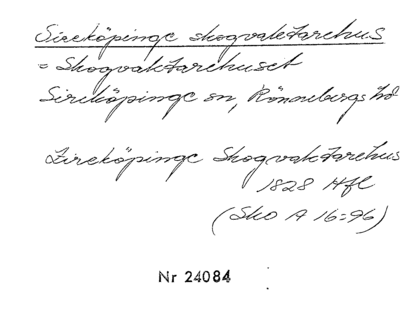 Sireköpinge skogvaktarehus
= Skogvaktarehuset
Sireköpinge sn, Rönnebergs hd
Zireköpinge Skogvaktarehus
1828 Hfl
(Sko A 16:96)
Nr 24084